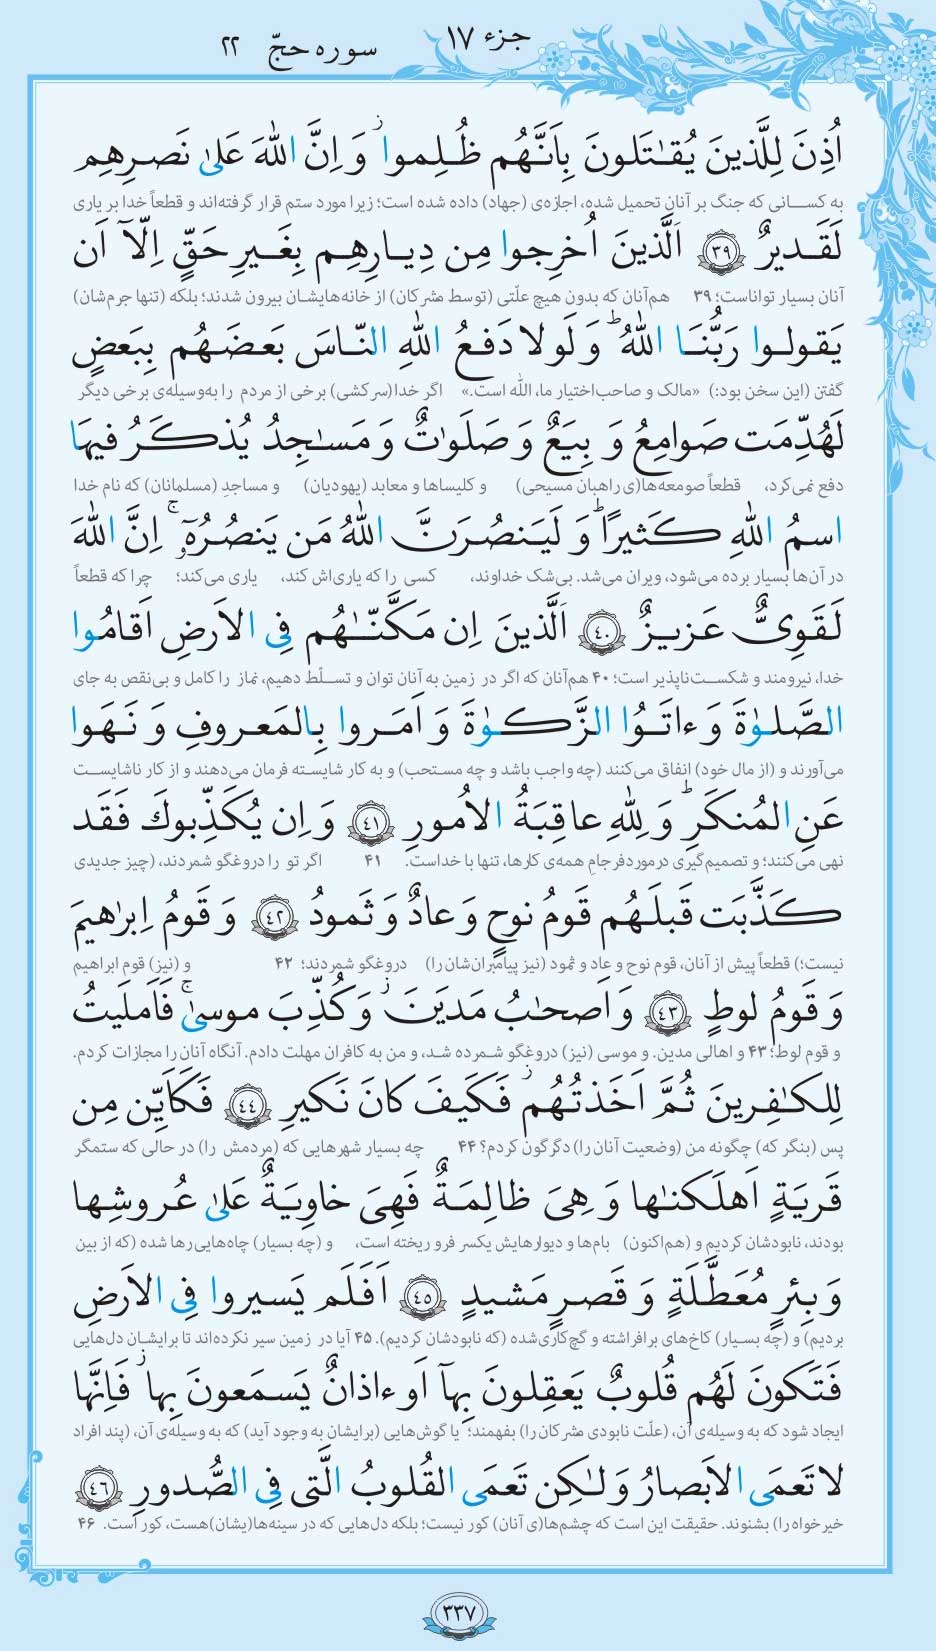 جزء ۱۷
سوره حجّ ۲۲
اُذِنَ لِلَّذينَ يُقٰتَلونَ بِاَنَّهُم ظُلِموا ۚ وَ اِنَّ اللّٰهَ عَلىٰ نَصرِهِم
به کسانی که جنگ بر آنان تحمیل شده، اجازه‌ی (جهاد) داده شده است؛ زیرا مورد ستم قرار گرفته‌اند و قطعاً خدا بر یاری
لَقَديرٌ ﴿٣٩﴾ اَلَّذينَ اُخرِجوا مِن دِيارِهِم بِغَيرِ حَقٍّ اِلّآ اَن
آنان بسیار تواناست؛ ۳۹ هم‌آنان که بدون هیچ علّتی (توسط مشرکان) از خانه‌هایشان بیرون شدند؛ بلکه (تنها جرم‌شان)
يَقولوا رَبُّنَا اللّٰهُ ۗ وَ لَولا دَفعُ اللّٰهِ النّاسَ بَعضَهُم بِبَعضٍ
گفتن (این سخن بود:) «مالک و صاحب‌اختیار ما، اللّٰه است.» اگر خدا (سرکشی) برخی از مردم را به‌وسیله‌ی برخی دیگر
لَهُدِّمَت صَوامِعُ وَ بِيَعٌ وَ صَلَوٰتٌ وَ مَسـٰجِدُ يُذكَرُ فيهَا
دفع نمی‌کرد، قطعاً صومعه‌ها(ی راهبان مسیحی) و کلیساها و معابد (یهودیان) و مساجدِ (مسلمانان) که نام خدا
اسمُ اللّٰهِ كَثيرًا ۗ وَ لَيَنصُرَنَّ اللّٰهُ مَن يَنصُرُهٓ ۚ اِنَّ اللّٰهَ
در آن‌ها بسیار برده می‌شود، ویران می‌شد. بی‌شک خداوند، کسی را که یاری‌اش کند، یاری می‌کند؛ چرا که قطعاً
لَقَوِىٌّ عَزيزٌ ﴿٤٠﴾ اَلَّذينَ اِن مَكَّنّٰهُم فِى الاَرضِ اَقامُوا
خدا، نیرومند و شکست‌ناپذیر است؛ ۴۰ هم‌آنان که اگر در زمین به آنان توان و تسلّط دهیم، نماز را کامل و بی‌نقص به جای
الصَّلوٰةَ وَ ءاتَوُا الزَّكوٰةَ وَ اَمَروا بِالمَعروفِ وَ نَهَوا
می‌آورند و (از مال خود) انفاق می‌کنند (چه واجب باشد و چه مستحب) و به کار شایسته فرمان می‌دهند و از کار ناشایست
عَنِ المُنكَرِ ۗ وَ لِلّٰهِ عاقِبَةُ الاُمورِ ﴿٤١﴾ وَ اِن يُكَذِّبوكَ فَقَد
نهی می‌کنند؛ و تصمیم‌گیری درمورد فرجامِ همه‌ی کارها، تنها با خداست. ۴۱ اگر تو را دروغگو شمردند، (چیز جدیدی
كَذَّبَت قَبلَهُم قَومُ نوحٍ وَ عادٌ وَ ثَمودُ ﴿٤٢﴾ وَ قَومُ اِبرٰهيمَ
نیست؛) قطعاً پیش از آنان، قوم نوح و عاد و ثمود (نیز پیامبران‌شان را) دروغگو شمردند؛ ۴۲ و (نیز) قوم ابراهیم
وَ قَومُ لوطٍ ﴿٤٣﴾ وَ اَصحٰبُ مَديَنَ ۖ وَ كُذِّبَ موسىٰ ۚ فَاَملَيتُ
و قوم لوط؛ ۴۳ و اهالی مدین. و موسی (نیز) دروغگو شمرده شد، و من به کافران مهلت دادم. آنگاه آنان را مجازات کردم.
لِلكـٰفِرينَ ثُمَّ اَخَذتُهُم ۖ فَكَيفَ كانَ نَكيرِ ﴿٤٤﴾ فَكَاَيِّن مِن
پس (بنگر که) چگونه من (وضعیت آنان را) دگرگون کردم؟ ۴۴ چه بسیار شهرهایی که (مردمش را) در حالی که ستمگر
قَريَةٍ اَهلَكنـٰها وَ هِىَ ظالِمَةٌ فَهِىَ خاوِيَةٌ عَلىٰ عُروشِها
بودند، نابودشان کردیم و (هم‌اکنون) بام‌ها و دیوارهایش یکسر فرو ریخته است، و (چه بسیار) چاه‌هایی رها شده (که از بین
وَ بِئرٍ مُعَطَّلَةٍ وَ قَصرٍ مَشيدٍ ﴿٤٥﴾ اَفَلَم يَسيروا فِى الاَرضِ
بردیم) و (چه بسیار) کاخ‌های برافراشته و گچ‌کاری‌شده (که نابودشان کردیم). ۴۵ آیا در زمین سیر نکرده‌اند تا برایشان دل‌هایی
فَتَكونَ لَهُم قُلوبٌ يَعقِلونَ بِهآ اَو ءاذانٌ يَسمَعونَ بِها ۖ فَاِنَّها
ایجاد شود که به وسیله‌ی آن، (علّت نابودی مشرکان را) بفهمند؛ یا گوش‌هایی (برایشان به وجود آید) که به وسیله‌ی آن، (پند افراد
لا تَعمَى الاَبصارُ وَ لـٰكِن تَعمَى القُلوبُ الَّتى فِى الصُّدورِ ﴿٤٦﴾
خیرخواه را) بشنوند. حقیقت این است که چشم‌ها(ی آنان) کور نیست؛ بلکه دل‌هایی که در سینه‌ها(یشان) هست، کور است. ۴۶
۳۳۷